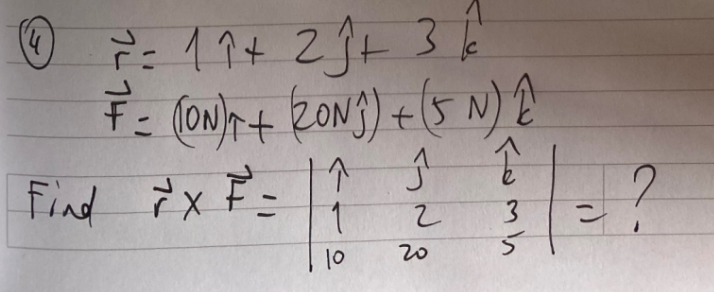 ④ r⃗ = 1 î + 2 ĵ + 3 k̂
F⃗ = (10N) î + (20N ĵ) + (5 N) k̂
Find r⃗ × F⃗ = | î ĵ k̂ | = ?
| 1 2 3 |
| 10 20 5 |